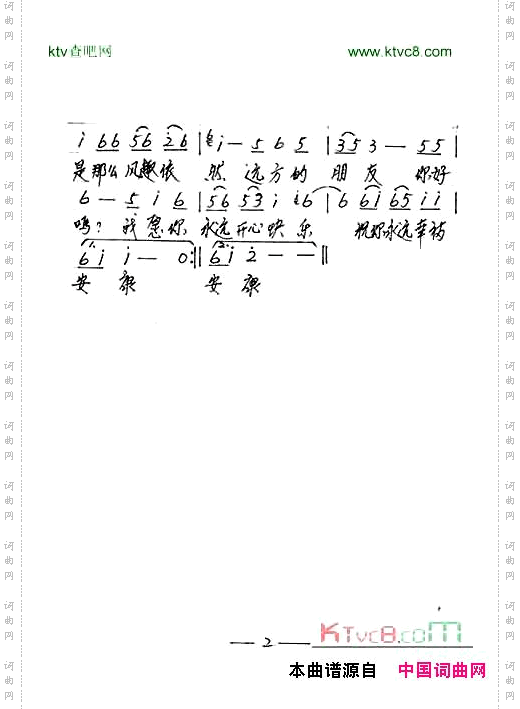 ktv查吧网 www.ktvc8.com
i 6 6 5 6 2 6 | i — 5 6 5 | 3 5 3 — 5 5 |
是那么风趣依 然 远方的 朋 友 你好
6 — 5 i 6 | 5 6 5 3 i i 6 | 6 6 i 6 5 i i |
吗? 我愿你 永远开心快 乐 祝你永远幸福
1. 2.
6 i i — 0 :‖ 6 i 2 — — ‖
安 康 安 康
— 2 — KTvc8.com
本曲谱源自 中国词曲网
词曲网
词曲网
词曲网
词曲网
词曲网
词曲网
词曲网
词曲网
词曲网
词曲网
词曲网
词曲网
词曲网
词曲网